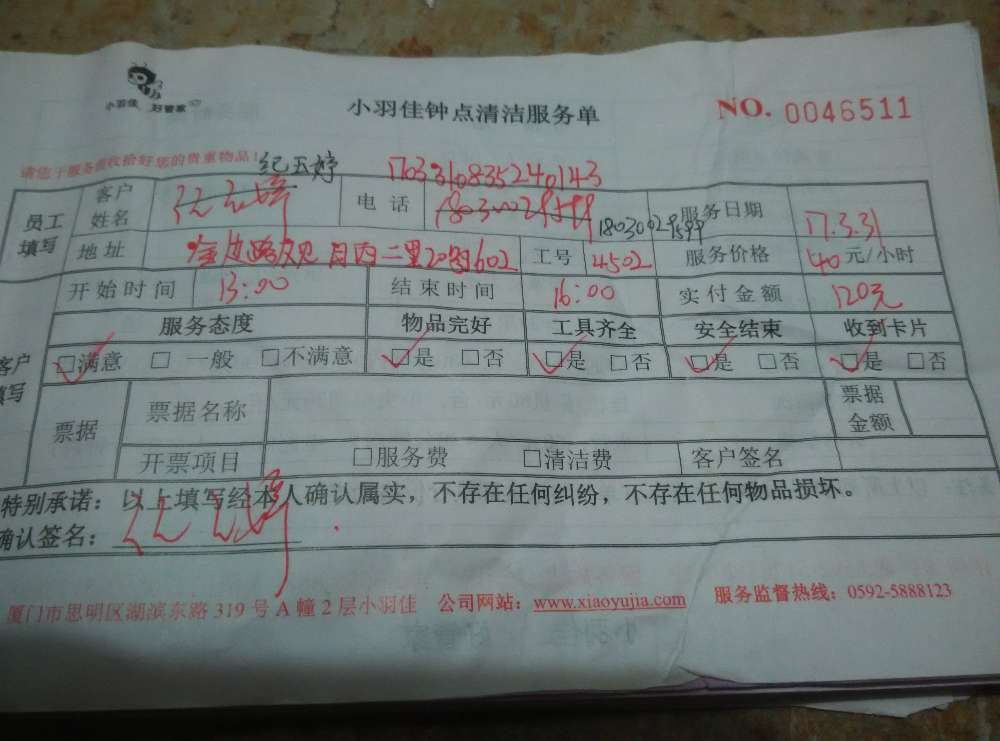 小羽佳 好管家
小羽佳钟点清洁服务单
NO. 0046511
请您于服务前收拾好您的贵重物品！
纪玉婷 1703310835240143
员工填写 客户姓名 电话 18030029599 服务日期 17.3.31
地址 工号 4502 服务价格 40元/小时
开始时间 13:00 结束时间 16:00 实付金额 120元
客户填写 服务态度 物品完好 工具齐全 安全结束 收到卡片
☑满意 □一般 □不满意 ☑是 □否 ☑是 □否 ☑是 □否 ☑是 □否
票据 票据名称 票据金额
开票项目 □服务费 □清洁费 客户签名
特别承诺：以上填写经本人确认属实，不存在任何纠纷，不存在任何物品损坏。
确认签名：
厦门市思明区湖滨东路 319 号 A 幢 2 层小羽佳 公司网站：www.xiaoyujia.com 服务监督热线：0592-5888123